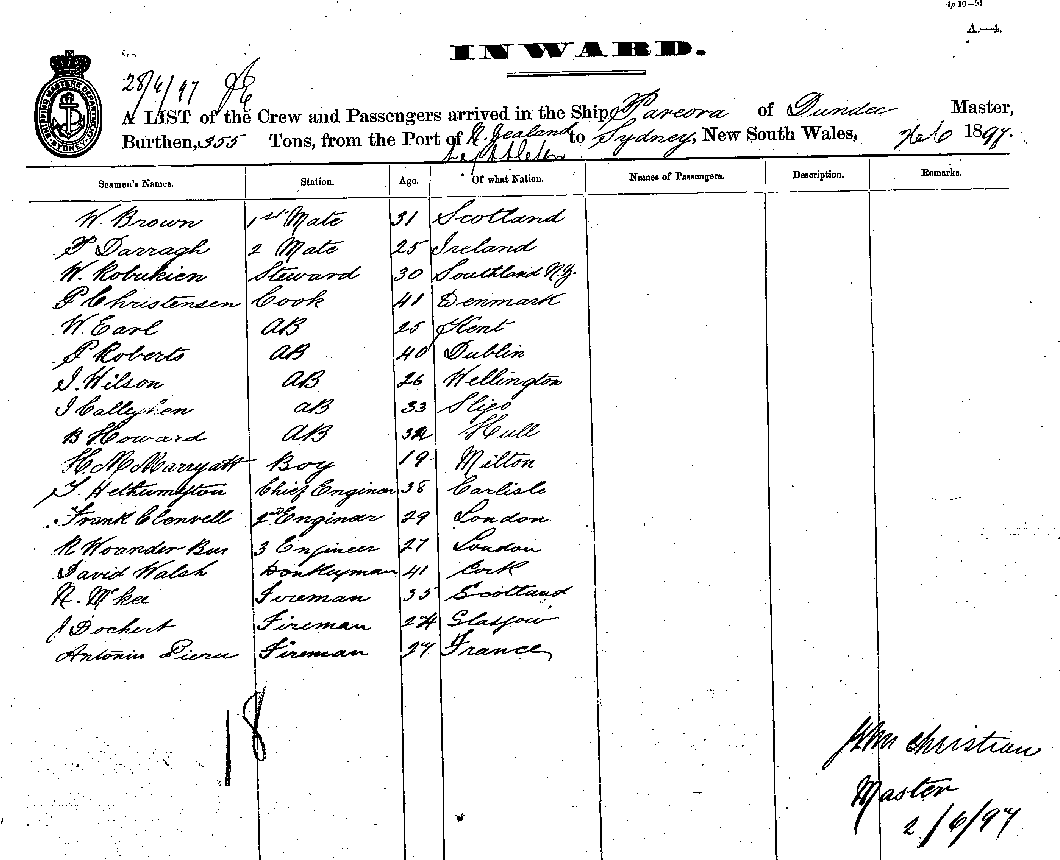 A.—4.
INWARD.
28/6/97
A LIST of the Crew and Passengers arrived in the Ship Pareora of Dundee Master,
Burthen, 355 Tons, from the Port of N. Zealand to Sydney, New South Wales, 1897.
Seamen's Names. Station. Age. Of what Nation. Names of Passengers. Description. Remarks.
W. Brown 1st Mate 31 Scotland
Darragh 2 Mate 25 Ireland
W. Robukien Steward 30 Southland N.Z.
P Christensen Cook 41 Denmark
W. Earl AB 25 Kent
P Roberts AB 40 Dublin
J. Wilson AB 26 Wellington
J Calleghen AB 33 Sligo
B Howard AB 32 Hull
H. M Marryatt Boy 19 Milton
Chief Engineer 38 Carlisle
Frank Clenvell 2nd Engineer 29 London
3 Engineer 27 London
David Walsh Donkeyman 41 Cork
N. McKee Fireman 35 Scotland
J Dochert Fireman 24 Glasgow
Antonio Fireman 27 France
18
John Christian
Master
2/6/97